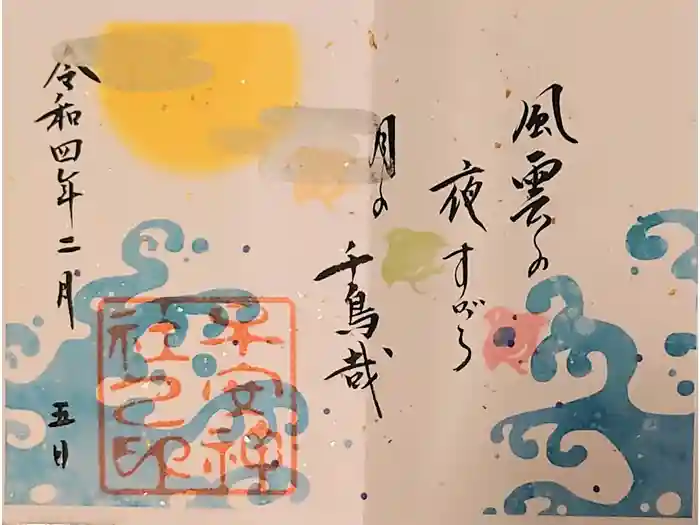 風雲の
夜すがら
月の
千鳥哉
令和四年二月
五日
平安神
社之印